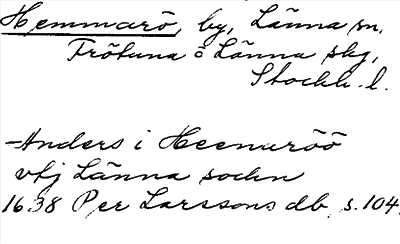 Hemmarö, by, Länna sn,
Frötuna o Länna skg,
Stockh. l.
Anders i Heenaröö
vthj Länna sochn
1638 Per Larssons db, s. 104.